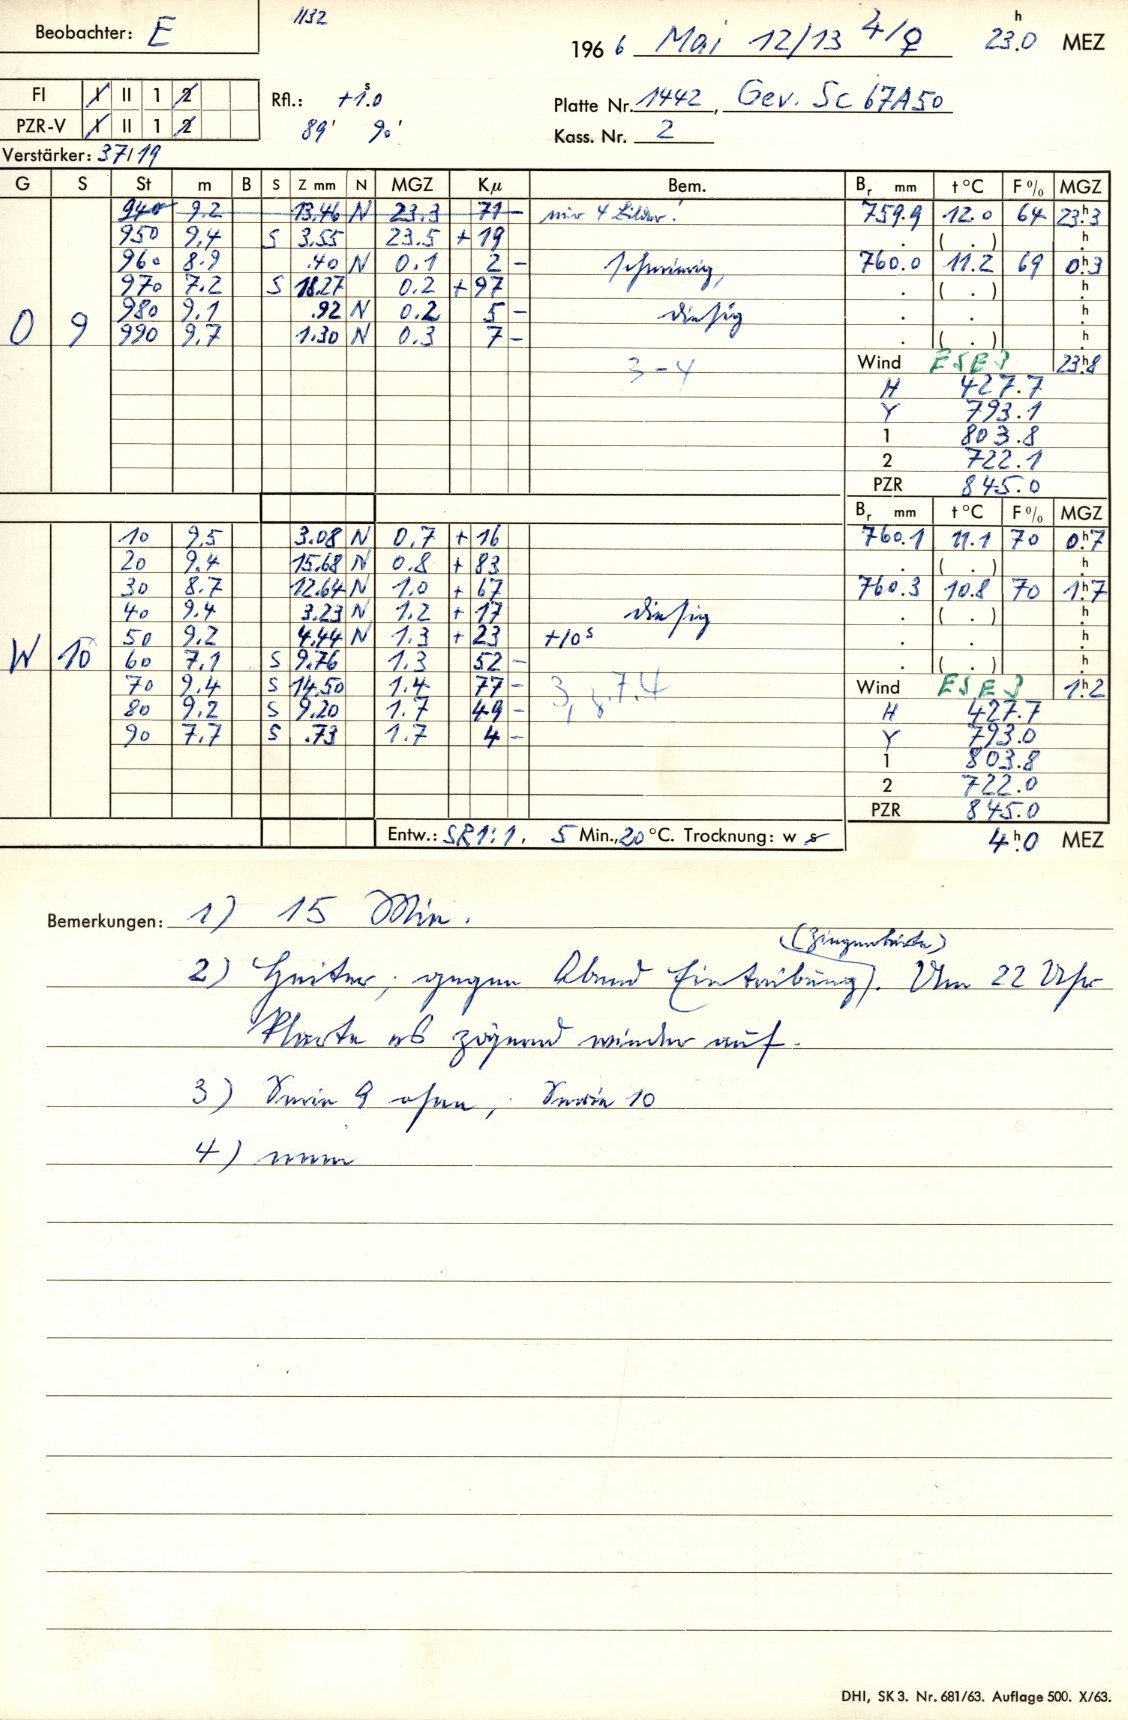 Beobachter: E
1132
1966 Mai 12/13 ♃/♀ 23.0 h MEZ
FI I II 1 2
PZR-V I II 1 2
Rfl.: +1.0 s
89' 90'
Platte Nr. 1442, Gev. Sc 67A50
Kass. Nr. 2
Verstärker: 37/19
G S St m B S Z mm N MGZ Kμ Bem. Br mm t °C F % MGZ
940 9.2 13.46 N 23.3 71 - nur 4 Bilder! 759.9 12.0 64 23.3 h
950 9.4 S 3.55 23.5 + 19 . ( . ) h
960 8.9 .40 N 0.1 2 - schwierig, 760.0 11.2 69 0.3 h
970 7.2 S 18.27 0.2 + 97 . ( . ) h
980 9.1 .92 N 0.2 5 - diesig . . h
O 9 990 9.7 1.30 N 0.3 7 - . ( . ) h
3-4 Wind ESE 3 23.8 h
H 427.7
Y 793.1
1 803.8
2 722.1
PZR 845.0
Br mm t °C F % MGZ
10 9.5 3.08 N 0.7 + 16 760.1 11.1 70 0.7 h
20 9.4 15.68 N 0.8 + 83 . ( . ) h
30 8.7 12.64 N 1.0 + 67 760.3 10.8 70 1.7 h
40 9.4 3.23 N 1.2 + 17 diesig . ( . ) h
50 9.2 4.44 N 1.3 + 23 +10 s . . h
W 10 60 7.1 S 9.76 1.3 52 - . ( . ) h
70 9.4 S 14.50 1.4 77 - 3, z.T. 4 Wind ESE 3 1.2 h
80 9.2 S 9.20 1.7 49 - H 427.7
90 7.7 S .73 1.7 4 - Y 793.0
1 803.8
2 722.0
PZR 845.0
Entw.: SR 1:1, 5 Min., 20 °C. Trocknung: w s 4.0 h MEZ
Bemerkungen: 1) 15 Min.
2) Heiter; gegen Abend Eintrübung (Zirrenbärte). Um 22 Uhr
klarte es zögernd wieder auf.
3) Serie 9 ohne, Serie 10
4) nein
DHI, SK 3. Nr. 681/63. Auflage 500. X/63.